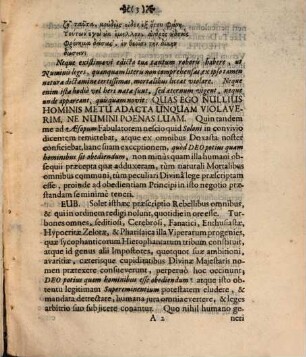 (3)
Neque existimavi edicta tua tantum roboris habere, ut
Numinis leges, quanquam literis non comprehensas, ex ipso tamen
naturæ dictamine certissimas, mortalibus liceat violare. Neque
enim ista hodie vel heri nata sunt, sed æternum vigent, neque
unde appareant, quisquam novit. QUAS EGO NULLIUS
HOMINIS METU ADACTA UNQUAM VIOLAVE-
RIM, NE NUMINI POENAS LUAM. Quin tandem
me ad Æsopum Fabulatorem nescio quid Soloni in convivio
dicentem remitebat, atque ex omnibus Doxastis nostet
conficiebat, hanc suam exceptionem, quod DEO potius quam
hominibus sit obediendum, non minus quam illa humani ob-
sequii præcepta quæ adduxeram, tùm naturali Mortalibus
omnibus communi, tùm peculiari Divinæ lege præscriptam
esse, proinde ad obedientiam Principi in isto negotio præ-
standam se minimè teneri.
EUB. Solet isthæc præscriptio Rebellibus omnibus,
& qui in ordinem redigi nolunt, quotidie in ore esse. Tur-
bones omnes, seditiosi, Cerebrosi, Fanatici, Enthusiastæ,
Hypocritæ Zelotæ, & Pharisaica illa Viperarum progenies,
quæ sycophanticorum Hierophantarum tribum constituit,
atque id genus alii Impostores, quotquot suæ ambitioni,
avaritiæ, cæterisque cupiditatibus Divinæ Majestatis no-
men prætexere consueverunt, perpetuò hoc occinunt,
DEO potius quam hominibus esse obediendum; atque isto ob-
tentu legitimam Supereminentium potestatem eludere, &
mandata detrectare, humana jura omnia evertere, & leges
arbitrio suo subjicere conantur. Quo nihil humano ge-
A 2 neri